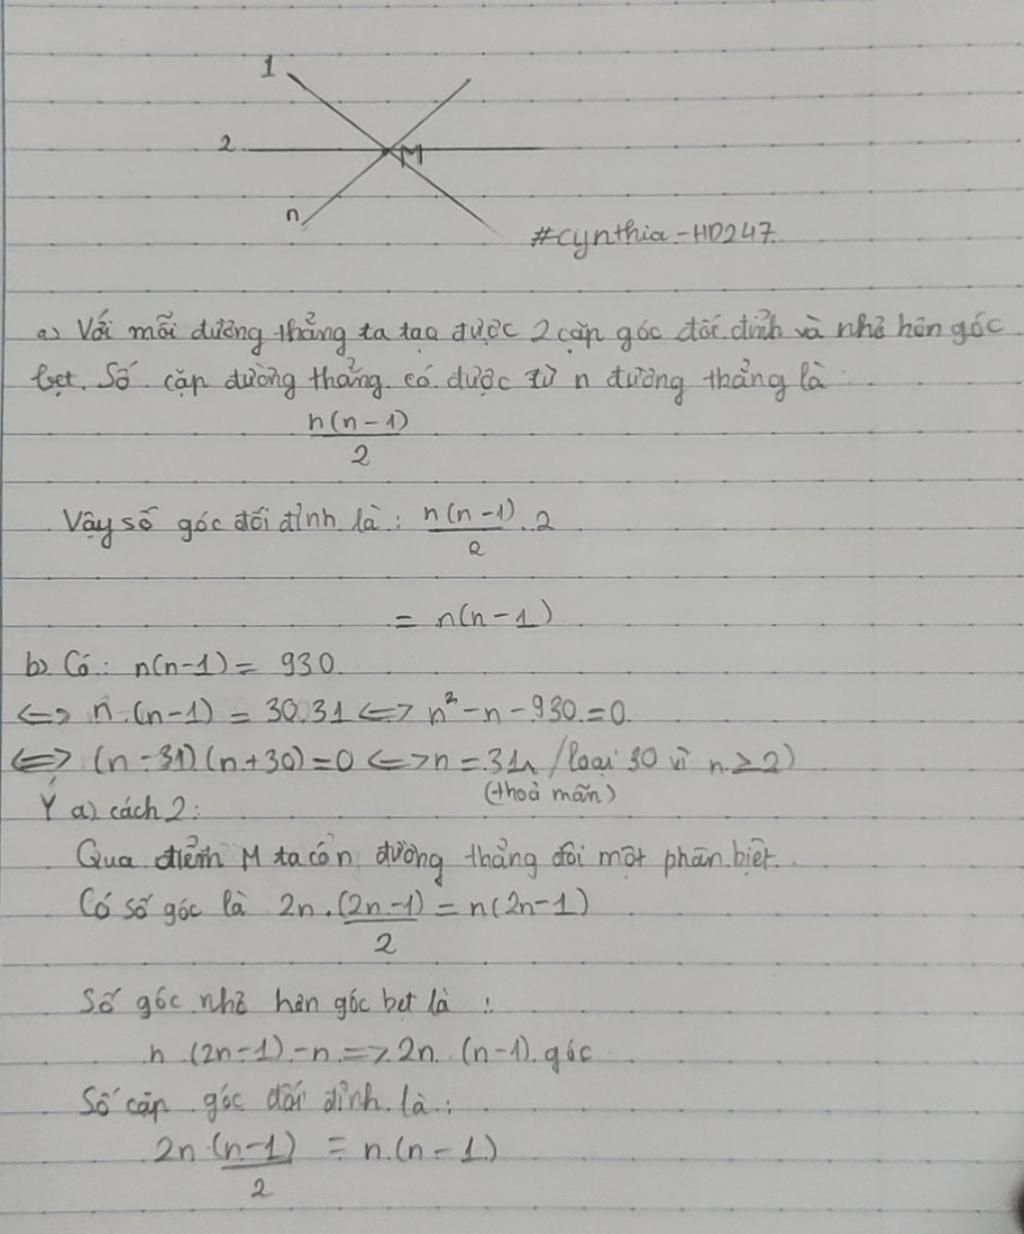 1
2
M
n
#cynthia-HD247
a) Với mỗi đường thẳng ta tạo được 2 cặp góc đối đỉnh và nhỏ hơn góc
bẹt. Số cặp đường thẳng có được từ n đường thẳng là
n(n-1)
2
Vậy số góc đối đỉnh là: n(n-1)/2 . 2
= n(n-1)
b) Có: n(n-1) = 930
<=> n.(n-1) = 30.31 <=> n²-n-930=0
<=> (n-31)(n+30)=0 <=> n=31 /loại 30 vì n≥2)
(thoả mãn)
Ý a) cách 2:
Qua điểm M ta có n đường thẳng đôi một phân biệt.
Có số góc là 2n.(2n-1)/2 = n(2n-1)
Số góc nhỏ hơn góc bẹt là :
n.(2n-1)-n => 2n.(n-1) góc
Số cặp góc đối đỉnh là:
2n.(n-1)/2 = n.(n-1)